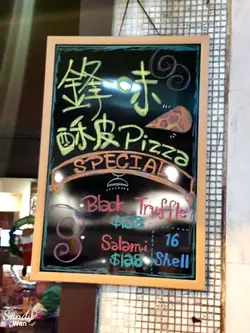 鋒味
酥皮Pizza
SPECIAL
Black Truffle
Salami
$128
16
Shell
Sandy
Wan